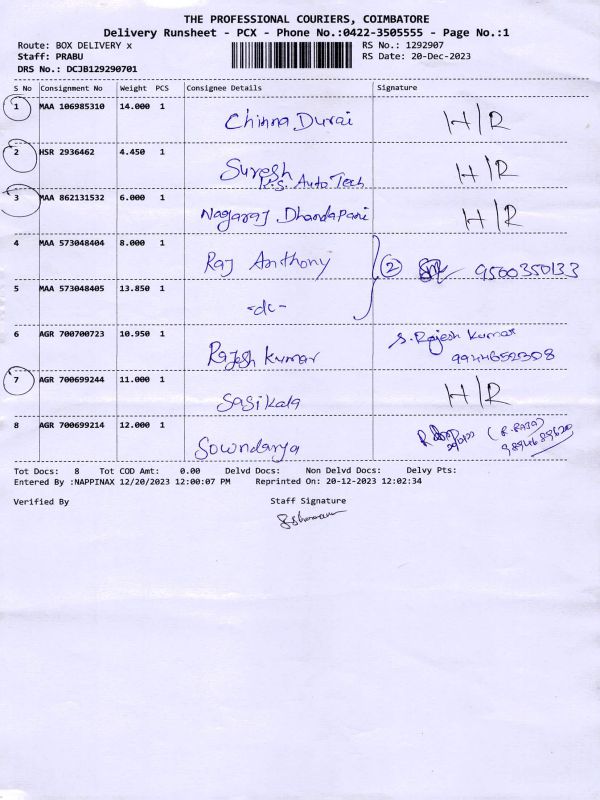 THE PROFESSIONAL COURIERS, COIMBATORE
Delivery Runsheet - PCX - Phone No.:0422-3505555 - Page No.:1
Route: BOX DELIVERY x RS No.: 1292907
Staff: PRABU RS Date: 20-Dec-2023
DRS No.: DCJB129290701
S No Consignment No Weight PCS Consignee Details Signature
1 MAA 106985310 14.000 1 Chinna Durai H/R
2 HSR 2936462 4.450 1 Suresh H/R
K.S. Auto Tech
3 MAA 862131532 6.000 1 Nagaraj Dhandapani H/R
4 MAA 573048404 8.000 1 Raj Anthony (2) 9500350133
5 MAA 573048405 13.850 1 -dc-
6 AGR 700700723 10.950 1 Rajesh Kumar S. Rajesh Kumar
9944652308
7 AGR 700699244 11.000 1 Sasikala H/R
8 AGR 700699214 12.000 1 Sowndarya (R. RAJA)
Tot Docs: 8 Tot COD Amt: 0.00 Delvd Docs: Non Delvd Docs: Delvy Pts:
Entered By :NAPPINAX 12/20/2023 12:00:07 PM Reprinted On: 20-12-2023 12:02:34
Verified By Staff Signature